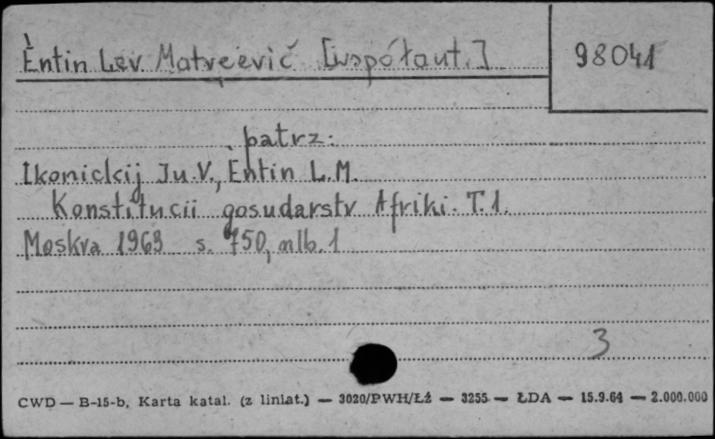 Èntin Lev Matveevič [współaut.]
98041
patrz:
Ikonickij Ju.V., Èntin L.M.
Konstitucii gosudarstv Afriki. T.1.
Moskva 1963 s. 750, nlb. 1
3
CWD — B-15-b, Karta katal. (z liniat.) — 3020/PWH/Łź — 3255 — ŁDA — 15.9.64 — 2.000.000